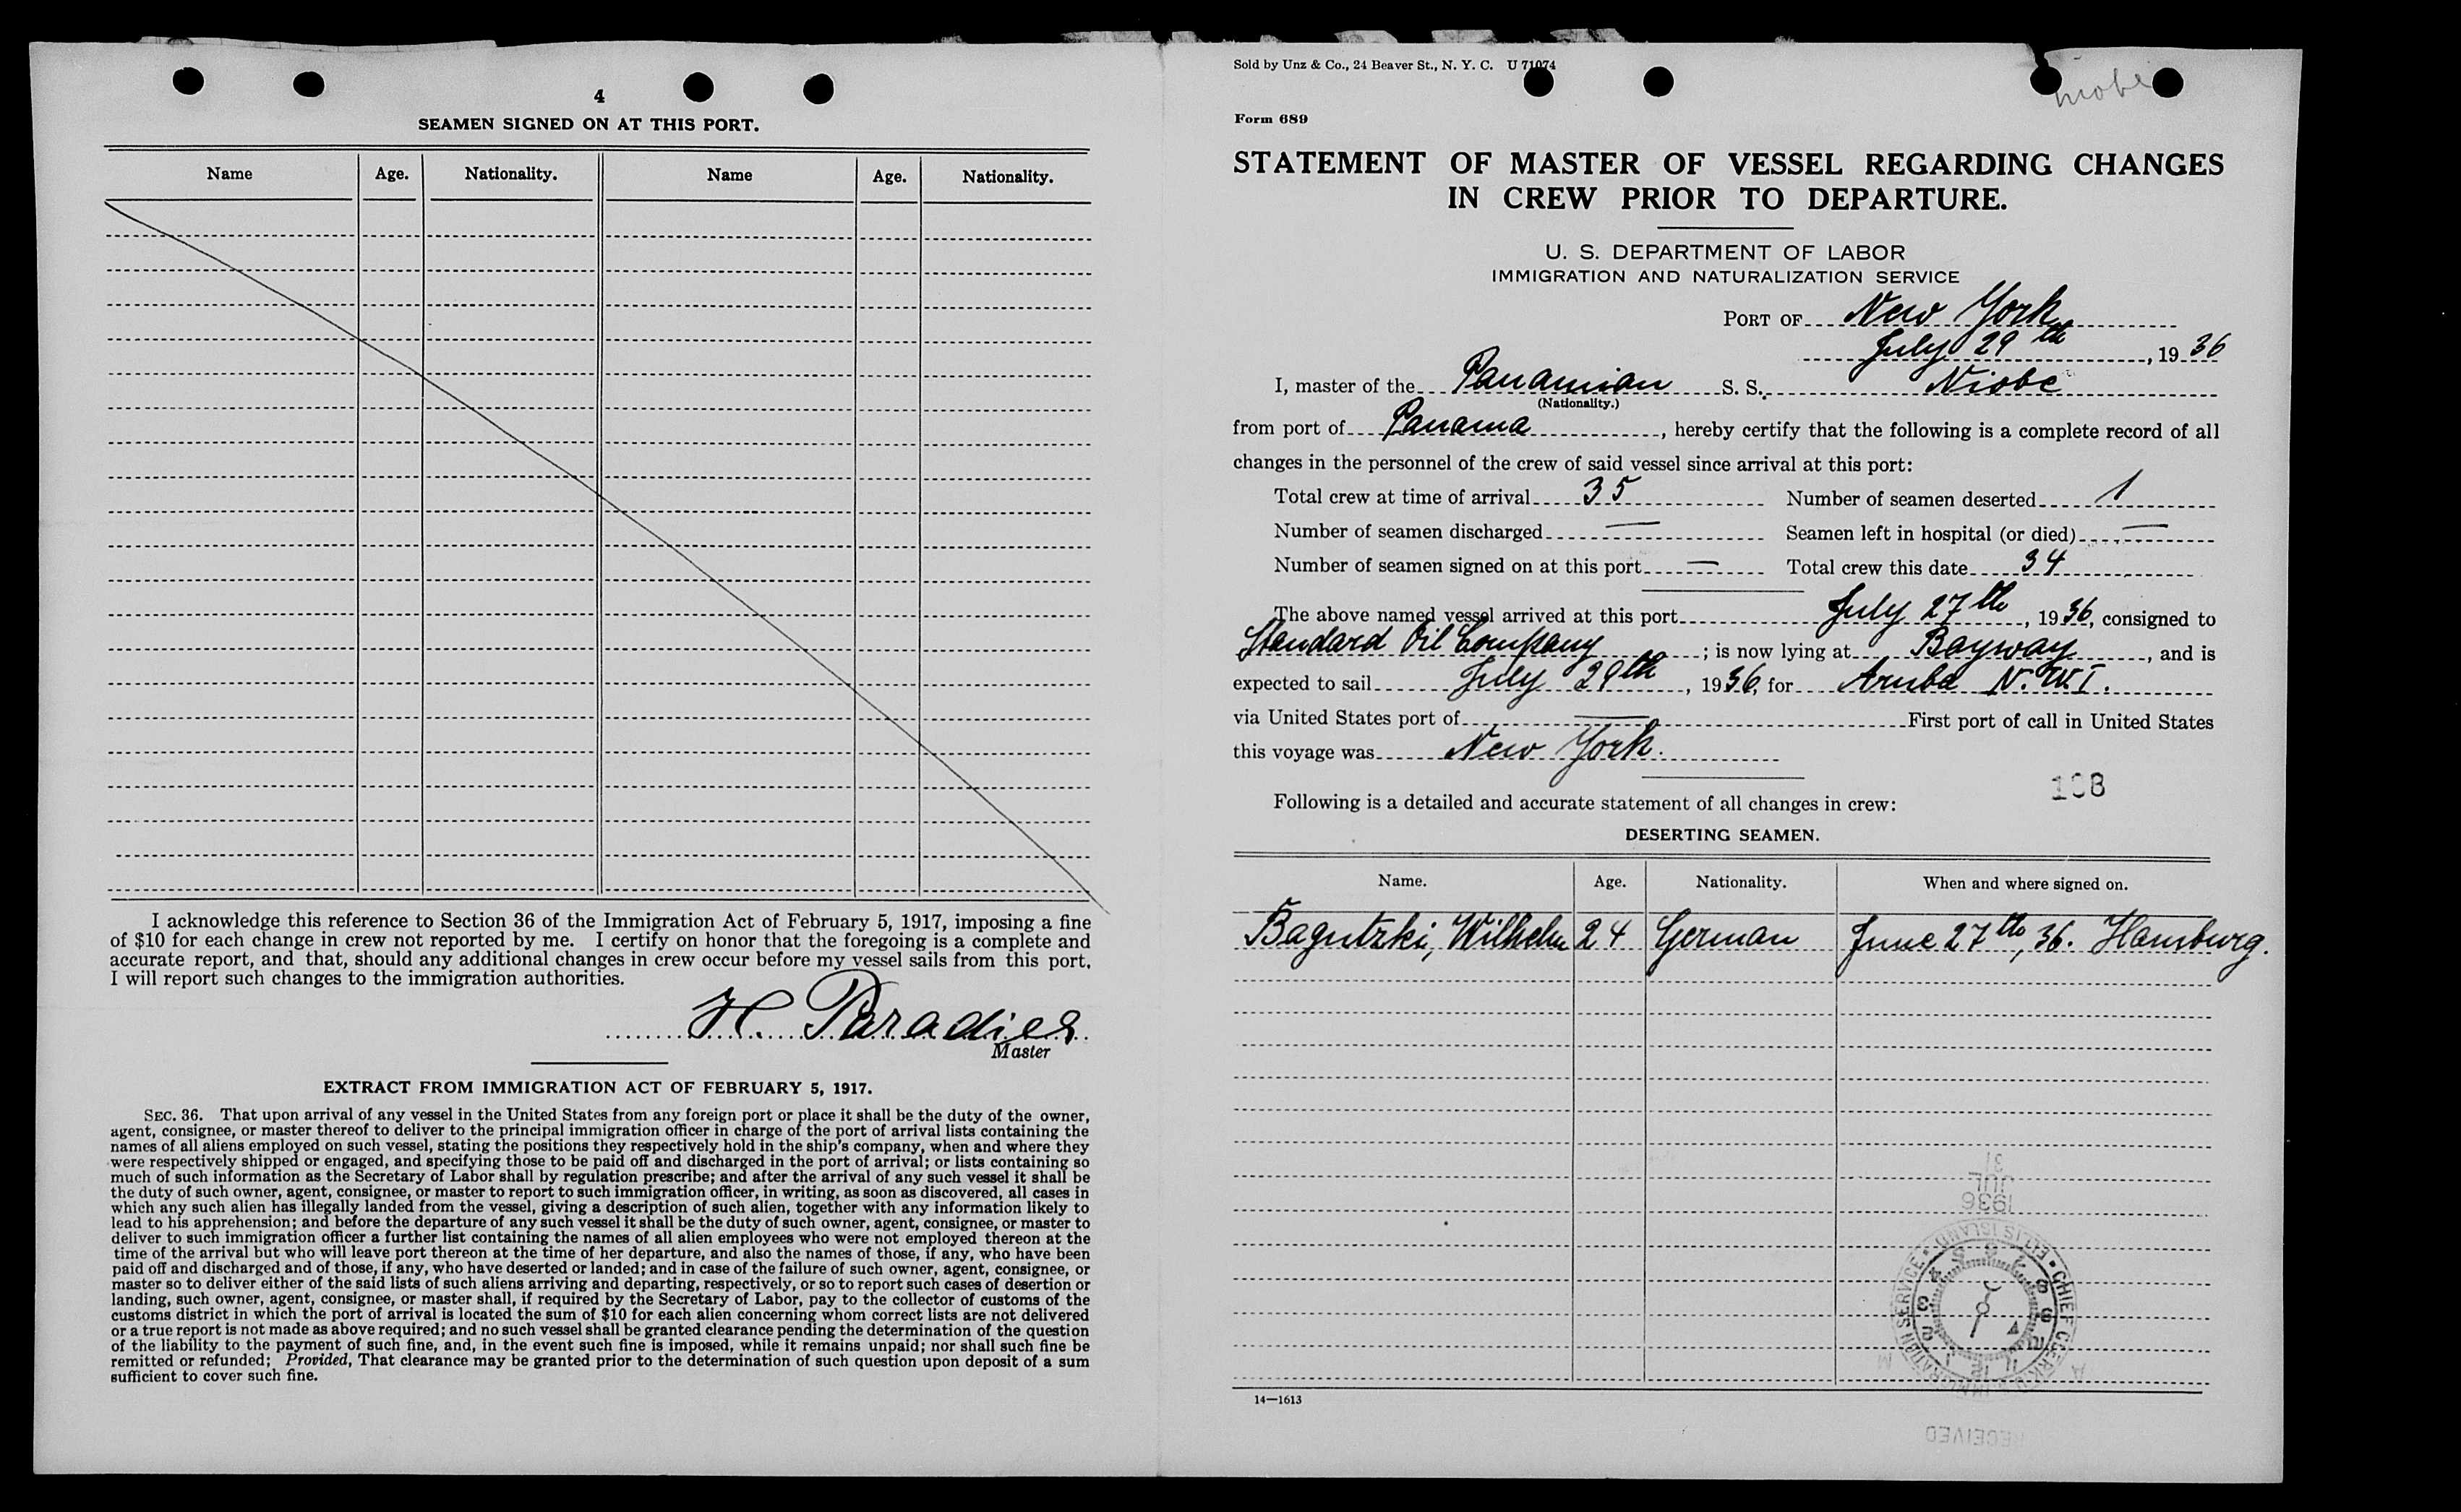 4
SEAMEN SIGNED ON AT THIS PORT.
Name Age. Nationality. Name Age. Nationality.
I acknowledge this reference to Section 36 of the Immigration Act of February 5, 1917, imposing a fine
of $10 for each change in crew not reported by me. I certify on honor that the foregoing is a complete and
accurate report, and that, should any additional changes in crew occur before my vessel sails from this port,
I will report such changes to the immigration authorities.
H. Paradies
Master
EXTRACT FROM IMMIGRATION ACT OF FEBRUARY 5, 1917.
SEC. 36. That upon arrival of any vessel in the United States from any foreign port or place it shall be the duty of the owner,
agent, consignee, or master thereof to deliver to the principal immigration officer in charge of the port of arrival lists containing the
names of all aliens employed on such vessel, stating the positions they respectively hold in the ship's company, when and where they
were respectively shipped or engaged, and specifying those to be paid off and discharged in the port of arrival; or lists containing so
much of such information as the Secretary of Labor shall by regulation prescribe; and after the arrival of any such vessel it shall be
the duty of such owner, agent, consignee, or master to report to such immigration officer, in writing, as soon as discovered, all cases in
which any such alien has illegally landed from the vessel, giving a description of such alien, together with any information likely to
lead to his apprehension; and before the departure of any such vessel it shall be the duty of such owner, agent, consignee, or master to
deliver to such immigration officer a further list containing the names of all alien employees who were not employed thereon at the
time of the arrival but who will leave port thereon at the time of her departure, and also the names of those, if any, who have been
paid off and discharged and of those, if any, who have deserted or landed; and in case of the failure of such owner, agent, consignee, or
master so to deliver either of the said lists of such aliens arriving and departing, respectively, or so to report such cases of desertion or
landing, such owner, agent, consignee, or master shall, if required by the Secretary of Labor, pay to the collector of customs of the
customs district in which the port of arrival is located the sum of $10 for each alien concerning whom correct lists are not delivered
or a true report is not made as above required; and no such vessel shall be granted clearance pending the determination of the question
of the liability to the payment of such fine, and, in the event such fine is imposed, while it remains unpaid; nor shall such fine be
remitted or refunded; Provided, That clearance may be granted prior to the determination of such question upon deposit of a sum
sufficient to cover such fine.
Sold by Unz & Co., 24 Beaver St., N. Y. C. U 71074
Niobe
Form 689
STATEMENT OF MASTER OF VESSEL REGARDING CHANGES
IN CREW PRIOR TO DEPARTURE.
U. S. DEPARTMENT OF LABOR
IMMIGRATION AND NATURALIZATION SERVICE
PORT OF New York
July 29th, 1936
I, master of the Panamian S. S. Niobe
(Nationality.)
from port of Panama, hereby certify that the following is a complete record of all
changes in the personnel of the crew of said vessel since arrival at this port:
Total crew at time of arrival 35 Number of seamen deserted 1
Number of seamen discharged — Seamen left in hospital (or died) —
Number of seamen signed on at this port — Total crew this date 34
The above named vessel arrived at this port July 27th, 1936, consigned to
Standard Oil Company; is now lying at Bayway, and is
expected to sail July 29th, 1936, for Aruba N.W.I.
via United States port of — First port of call in United States
this voyage was New York.
108
Following is a detailed and accurate statement of all changes in crew:
DESERTING SEAMEN.
Name. Age. Nationality. When and where signed on.
Bagutzki, Wilhelm 24 German June 27th, 36. Hamburg.
31
JUL
1936
ELLIS ISLAND • CHIEF CLERK IMMIGRATION SERVICE •
A M
14—1613
RECEIVED